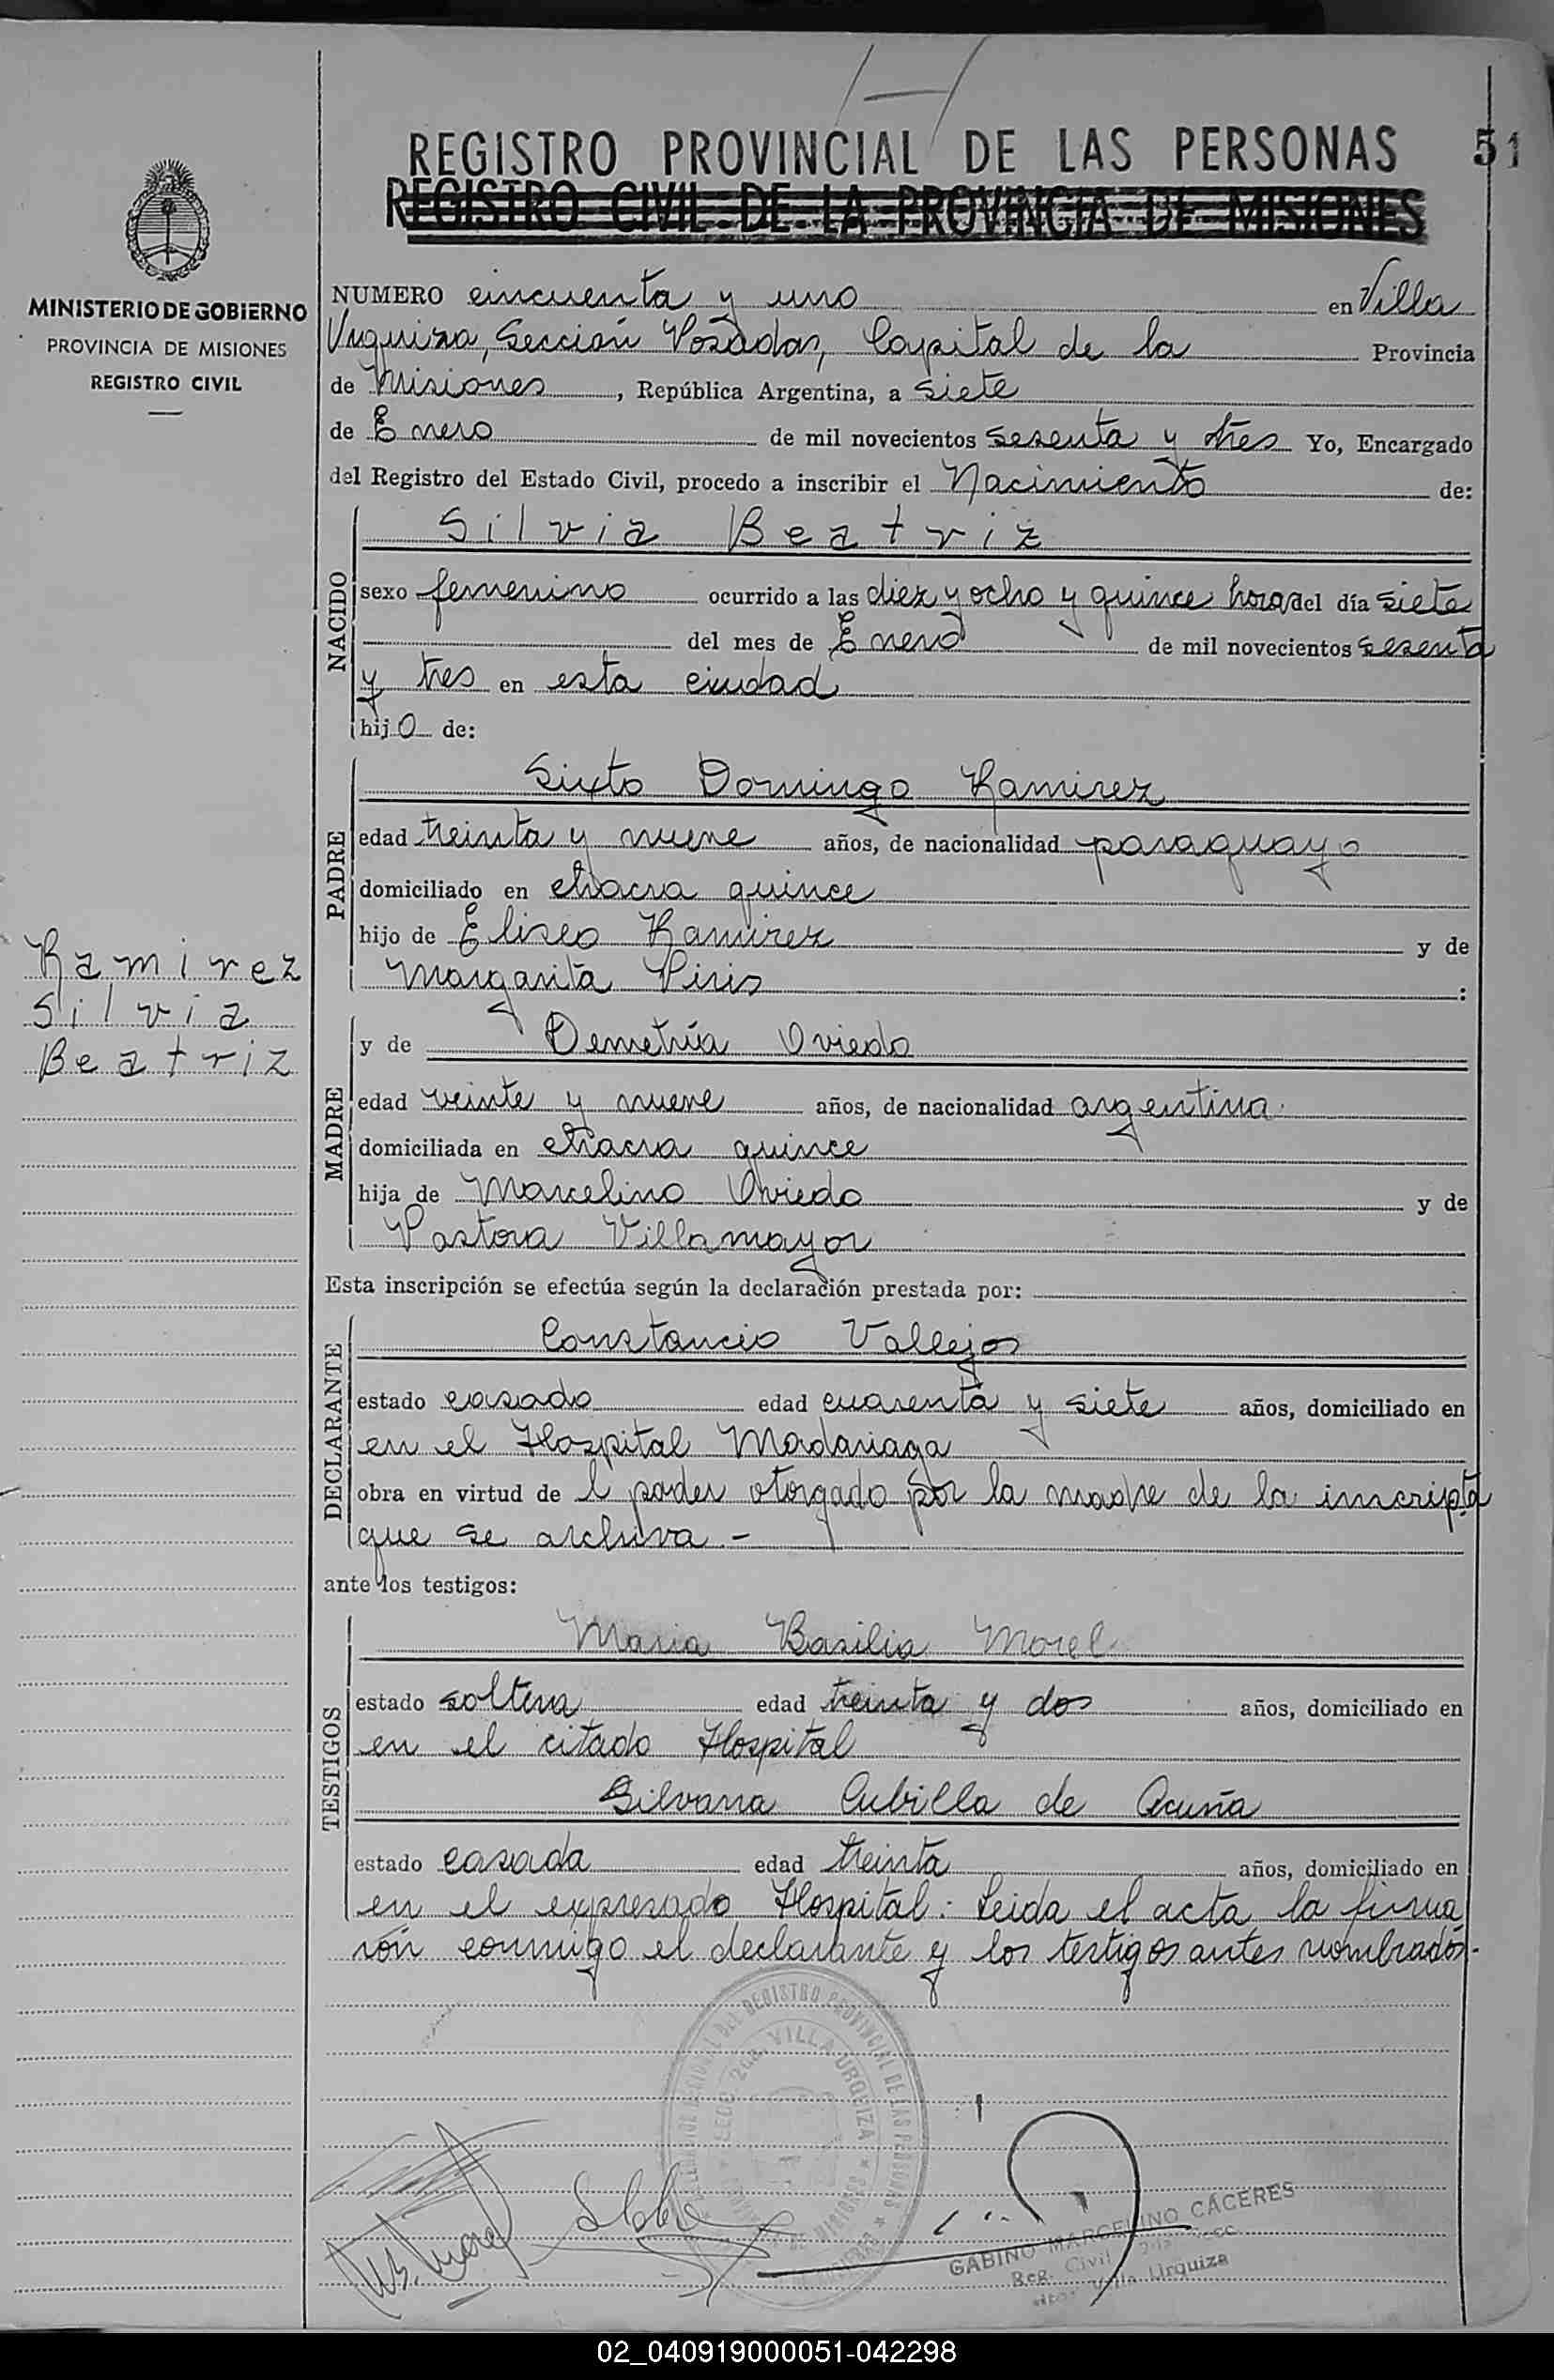 REGISTRO PROVINCIAL DE LAS PERSONAS 51
REGISTRO CIVIL DE LA PROVINCIA DE MISIONES
MINISTERIO DE GOBIERNO
PROVINCIA DE MISIONES
REGISTRO CIVIL
NUMERO cincuenta y uno en Villa
Urquiza, Sección Posadas, Capital de la Provincia
de Misiones, República Argentina, a siete
de Enero de mil novecientos sesenta y tres Yo, Encargado
del Registro del Estado Civil, procedo a inscribir el Nacimiento de:
NACIDO
Silvia Beatriz
sexo femenino ocurrido a las diez y ocho y quince horas del día siete
del mes de Enero de mil novecientos sesenta
y tres en esta ciudad
hijo de:
PADRE
Sixto Domingo Ramirez
edad treinta y nueve años, de nacionalidad paraguayo
domiciliado en chacra quince
hijo de Eliseo Ramirez y de
Margarita Piris :
Ramirez
Silvia
Beatriz
MADRE
y de Demetria Oviedo
edad veinte y nueve años, de nacionalidad argentina.
domiciliada en chacra quince
hija de Marcelino Oviedo y de
Pastora Villamayor
Esta inscripción se efectúa según la declaración prestada por:
DECLARANTE
Constancio Vallejos
estado casado edad cuarenta y siete años, domiciliado en
en el Hospital Madariaga
obra en virtud de l poder otorgado por la madre de la inscripta
que se archiva.-
ante los testigos:
TESTIGOS
Maria Basilia Morel
estado soltera edad treinta y dos años, domiciliado en
en el citado Hospital
Silvana Cubilla de Acuña
estado casada edad treinta años, domiciliado en
en el expresado Hospital: Leida el acta, la firma
rón conmigo el declarante y los testigos antes nombrados.-
REGISTRO PROVINCIAL DE LAS PERSONAS
VILLA URQUIZA
MISIONES
GABINO MARCELINO CÁCERES
Reg. Civil
Villa Urquiza
02_040919000051-042298